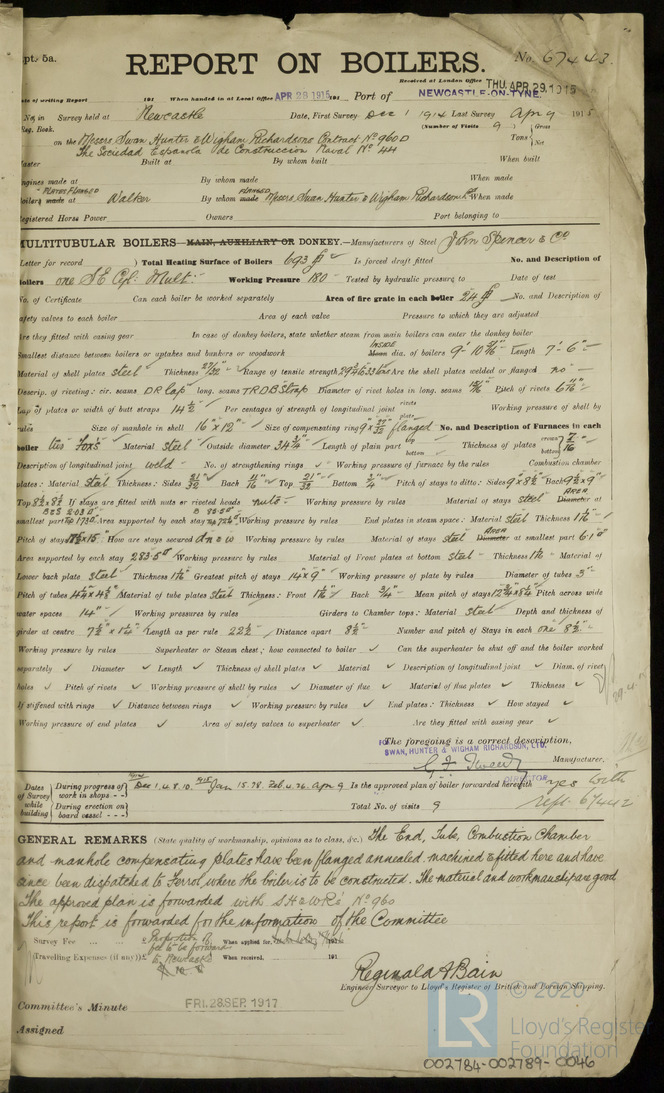 pt. 5a.
REPORT ON BOILERS.
No. 67443
Received at London Office THU. APR. 29. 1915
Date of writing Report 191 When handed in at Local Office APR 28 1915 191 Port of NEWCASTLE-ON-TYNE.
No. in Survey held at Newcastle Date, First Survey Dec 1 1914 Last Survey Apr 9 1915
Reg. Book. (Number of Visits 9) Gross
on the Messrs Swan Hunter & Wigham Richardsons Contract No 960D Tons Net
The Sociedad Espanola de Construccion Naval No 44
Master Built at By whom built When built
Engines made at By whom made When made
PLATES FLANGED FLANGED
Boilers made at Walker By whom made Messrs Swan Hunter & Wigham Richardson Ld When made
Registered Horse Power Owners Port belonging to
MULTITUBULAR BOILERS MAIN, AUXILIARY OR DONKEY.—Manufacturers of Steel John Spencer & Co
Letter for record ) Total Heating Surface of Boilers 693 Is forced draft fitted No. and Description of
Boilers one S.E. Cyl. Mult. Working Pressure 180 Tested by hydraulic pressure to Date of test
No. of Certificate Can each boiler be worked separately Area of fire grate in each boiler 24 No. and Description of
safety valves to each boiler Area of each valve Pressure to which they are adjusted
Are they fitted with easing gear In case of donkey boilers, state whether steam from main boilers can enter the donkey boiler
INSIDE
Smallest distance between boilers or uptakes and bunkers or woodwork Mean dia. of boilers 9'-10 Length 7'-6"
Material of shell plates steel Thickness Range of tensile strength Are the shell plates welded or flanged no
Descrip. of riveting: cir. seams DR Lap long. seams TRDB Strap Diameter of rivet holes in long. seams 15/16 Pitch of rivets
Lap of plates or width of butt straps 14½ Per centages of strength of longitudinal joint rivets plate Working pressure of shell by
rules Size of manhole in shell 16"x12" Size of compensating ring flanged No. and Description of Furnaces in each
boiler two Fox's Material steel Outside diameter 34¾ Length of plain part top bottom Thickness of plates crown bottom 7/16
Description of longitudinal joint weld No. of strengthening rings ✓ Working pressure of furnace by the rules Combustion chamber
plates: Material steel Thickness: Sides 21/32 Back 11/16 Top 21/32 Bottom ¾ Pitch of stays to ditto: Sides 9x8½ Back 9½x9
Top 8½x8½ If stays are fitted with nuts or riveted heads nuts Working pressure by rules Material of stays steel Diameter at AREA
smallest part Area supported by each stay Working pressure by rules End plates in steam space: Material steel Thickness
Pitch of stays How are stays secured dn & w Working pressure by rules Material of stays steel AREA Diameter at smallest part
Area supported by each stay Working pressure by rules Material of Front plates at bottom steel Thickness Material of
Lower back plate steel Thickness Greatest pitch of stays 14x9 Working pressure of plate by rules Diameter of tubes 3"
Pitch of tubes Material of tube plates steel Thickness: Front Back ¾ Mean pitch of stays Pitch across wide
water spaces 14" Working pressures by rules Girders to Chamber tops: Material steel Depth and thickness of
girder at centre Length as per rule 22½ Distance apart 8½ Number and pitch of Stays in each one 8½
Working pressure by rules Superheater or Steam chest; how connected to boiler ✓ Can the superheater be shut off and the boiler worked
separately ✓ Diameter ✓ Length ✓ Thickness of shell plates ✓ Material ✓ Description of longitudinal joint ✓ Diam. of rivet
holes ✓ Pitch of rivets ✓ Working pressure of shell by rules ✓ Diameter of flue ✓ Material of flue plates ✓ Thickness ✓
If stiffened with rings ✓ Distance between rings ✓ Working pressure by rules ✓ End plates: Thickness ✓ How stayed ✓
Working pressure of end plates ✓ Area of safety valves to superheater ✓ Are they fitted with easing gear ✓
The foregoing is a correct description,
FOR SWAN, HUNTER & WIGHAM RICHARDSON, LTD.
G F Tweedy Manufacturer.
DIRECTOR
Dates of Survey while building
During progress of work in shops - - 1914 Dec 1. 4. 8. 10. 1915 Jan 15. 28. Feb 4. 26. Apr 9 Is the approved plan of boiler forwarded herewith yes with
During erection on board vessel - - - Total No. of visits 9 rept. 67442
GENERAL REMARKS (State quality of workmanship, opinions as to class, &c.) The End, Tube, Combustion Chamber
and manhole compensating plates have been flanged annealed machined & fitted here and have
since been dispatched to Ferrol where the boiler is to be constructed. The material and workmanship are good
The approved plan is forwarded with S.H. & W.R.'s No 960
This report is forwarded for the information of the Committee
Survey Fee ... ... £ Proportion of When applied for, 191
fee to be forwarded
Travelling Expenses (if any) £ to Newcastle When received, 191
Reginald A Bain
Engineer Surveyor to Lloyd's Register of British and Foreign Shipping.
Committee's Minute FRI. 28 SEP. 1917
Assigned
LR © 2020
Lloyd's Register
Foundation
002784-002789-0046